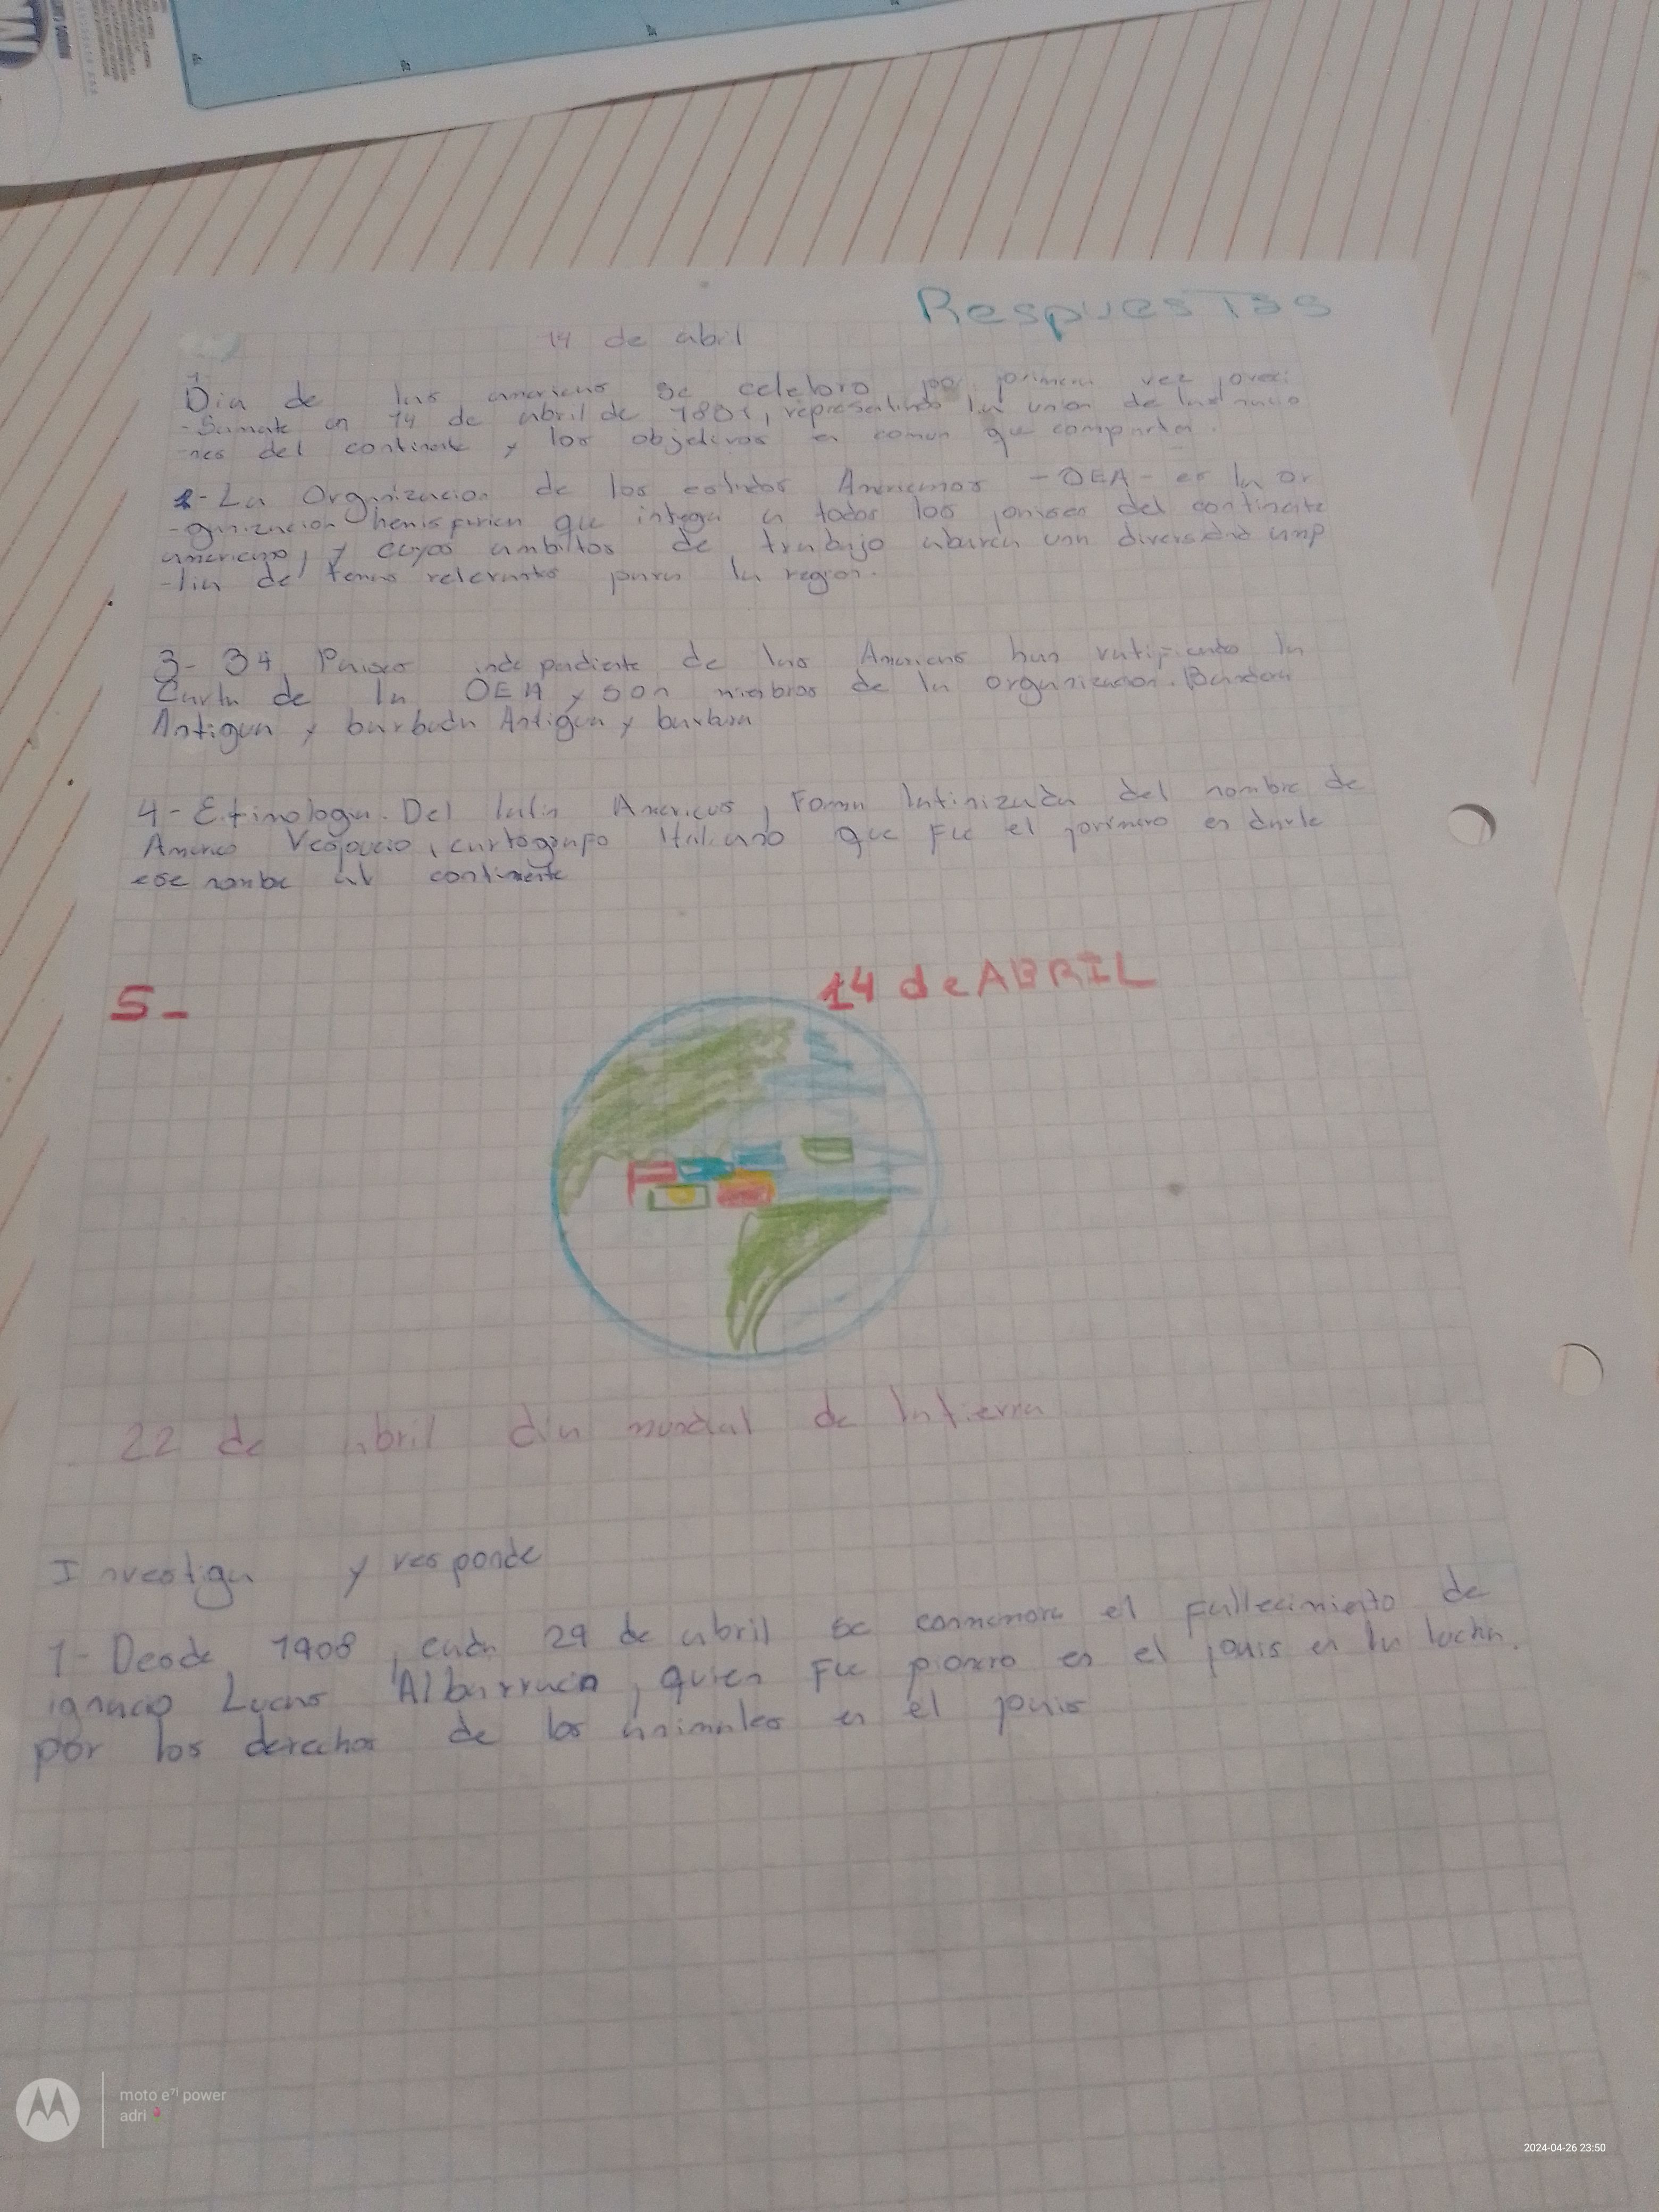 Respuestas
14 de abril
1
Dia de las americas se celebro por primera vez preci
-Samate en 14 de abril de 1801, representando la union de las nacio
-nes del continente y los objetivos en comun que comparten.
2- La Organizacion de los estados Americanos - OEA - es la or
-ganizacion hemisferica que integra a todos los paises del continente
americano, y cuyos ambitos de trabajo abarca una diversidad amp
-lia de temas relevantes para la region.
3- 34 Paises independiente de las Americas han ratificado la
Carta de la OEA y son miembros de la organizacion. Bandera
Antigua y barbuda Antigua y barbua
4- Etimologia. Del latin Americus, Forma latinizada del nombre de
Americo Vespucio, cartografo Italiano que Fue el primero en darle
ese nombre al continente
14 de ABRIL
5-
22 de abril dia mundial de la tierra
Investiga y responde
1- Desde 1908, cada 29 de abril se conmemora el fallecimiento de
ignacio Lucas Albarracin, quien Fue pionero en el pais en la lucha.
por los derechos de los animales en el pais
moto e⁷ⁱ power
adri
2024-04-26 23:50